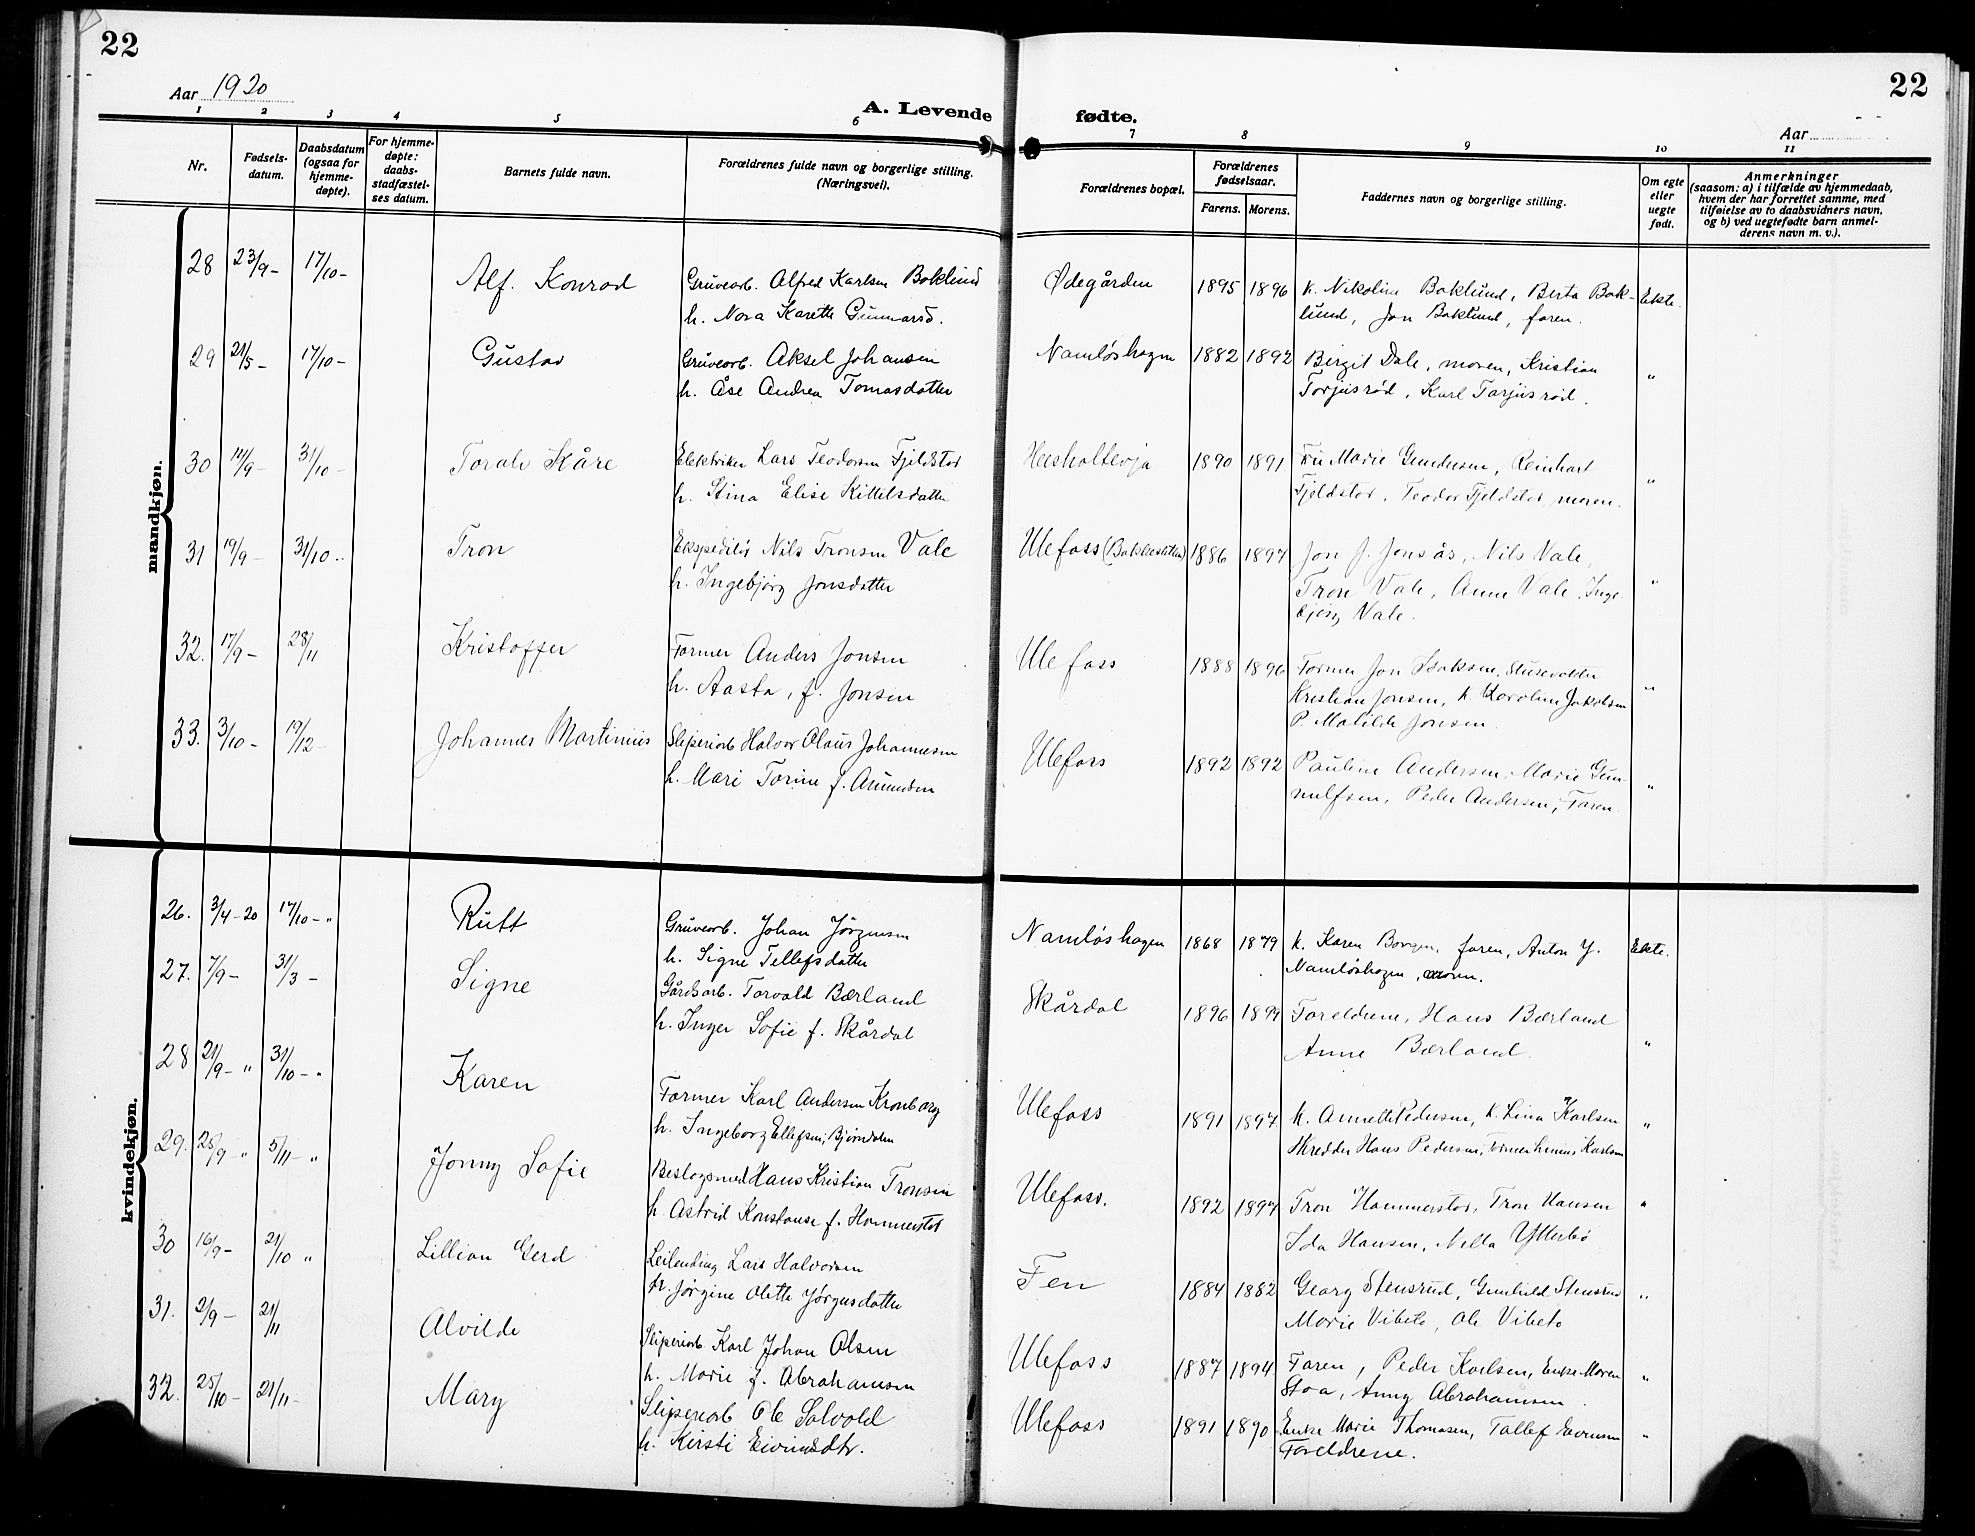 22
22
Aar 1920
A. Levende fødte.
Aar
1 2 3 4 5 6 7 8 9 10 11
Nr.
Fødsels-
datum.
Daabsdatum
(ogsaa for
hjemme-
døpte).
For hjemme-
døpte:
daabs-
stadfæstel-
ses datum.
Barnets fulde navn.
Forældrenes fulde navn og borgerlige stilling.
(Næringsvei).
Forældrenes bopæl.
Forældrenes
fødselsaar.
Farens. Morens.
Faddernes navn og borgerlige stilling.
Om egte
eller
uegte
født.
Anmerkninger
(saasom: a) i tilfælde av hjemmedaab,
hvem der har forrettet samme, med
tilføielse av to daabsvidners navn,
og b) ved uegtefødte barn anmel-
derens navn m. v.).
mandkjøn.
28 23/9- 17/10- Alf. Konrad Gruvearb. Alfred Karlsen Boklund Ødegården 1895 1896 k. Nikoline Boklund, Berta Bok- Ekte.
h. Nora Karette Gunnarsd. lund, Jon Boklund, faren.
29 21/5- 17/10- Gustav Gruvearb. Aksel Johansen Namløshagen 1882 1892 Birgit Dale, moren, Kristian "
h. Åse Andrea Tomasdatter Torjusrød, Karl Torjusrød.
30 /9- 31/10- Toralv Kåre Elektriker Lars Teodorsen Fjeldstad 1890 1891 Fru Marie Gundersen, Reinhart "
h. Stina Elise Kittelsdatter Fjeldstad, Teodor Fjeldstad, moren.
31 19/9- 31/10- Tron Ekspeditør Nils Tronsen Vale Ulefoss 1886 1897 Jon J. Jonsås, Nils Vale, "
h. Ingebjørg Jonsdatter Tron Vale, Anne Vale, Inge-
bjørg Vale.
32. 17/9- 28/11 Kristoffer Former Anders Jonsen Ulefoss 1888 1896 Former Jon Isaksen, "
h. Aasta, f. Jonsen Kristian Jonsen, k. Karoline Jakobsen
P. Matilde Jonsen.
33. 3/10- 19/12- Johannes Martinius Sliperiarb Halvor Olaus Johannesen Ulefoss 1892 1892 Pauline Andersen, Marie Gun- "
h. Mari Torine f. Amundsen nulfsen, Peder Andersen, Faren.
kvindekjøn.
26. 3/4-20 17/10-" Rutt Gruvearb. Johan Jörgensen Namløshagen 1868 1879 k. Karen Borgen, faren, Anton J. Ekte.
h. Signe Tellefsdatter Namløshagen, moren.
27. 7/9- 31/3- Signe Gårdsarb. Torvald Bærland Skårdal 1896 1899 Foreldrene, Hans Bærland "
h. Inger Sofie f. Skårdal Anne Bærland.
28 21/9-" 31/10-" Karen Former Karl Andersen Kronborg Ulefoss 1891 1897 k. Annette Pedersen, k. Lina Karlsen "
h. Ingeborg Ellefsen, Bjørndalen Skredder Hans Pedersen, Former Karlsen
29. 25/9 " 5/11-" Jonny Sofie Beslagsmed Hans Kristian Tronsen Ulefoss. 1892 1897 Tron Hammerstad, Tron Hansen "
h. Astrid Konstanse f. Hammerstad Ida Hansen, Nella Ytterbø
30 16/9- 21/10 " Lillian Gerd Leilending Lars Halvorsen Fen 1884 1882 Georg Stensrud, Gunhild Stensrud "
h. Jørgine Olette Jørgensdatter Marie Vibeto, Ole Vibeto
31. 2/9- 21/11 Alvilde Sliperiarb Karl Johan Olsen Ulefoss 1887 1894 Faren, Peder Karlsen, Enke Maren "
h. Marie f. Abrahamsen Stoa, Anny Abrahamsen.
32. 25/10- 21/11- Mary Sliperiarb Ole Solvold Ulefoss 1891 1890 Enke Marie Thomasen, Tallef "
h. Kirsti Eivindsdtr. Foreldrene.